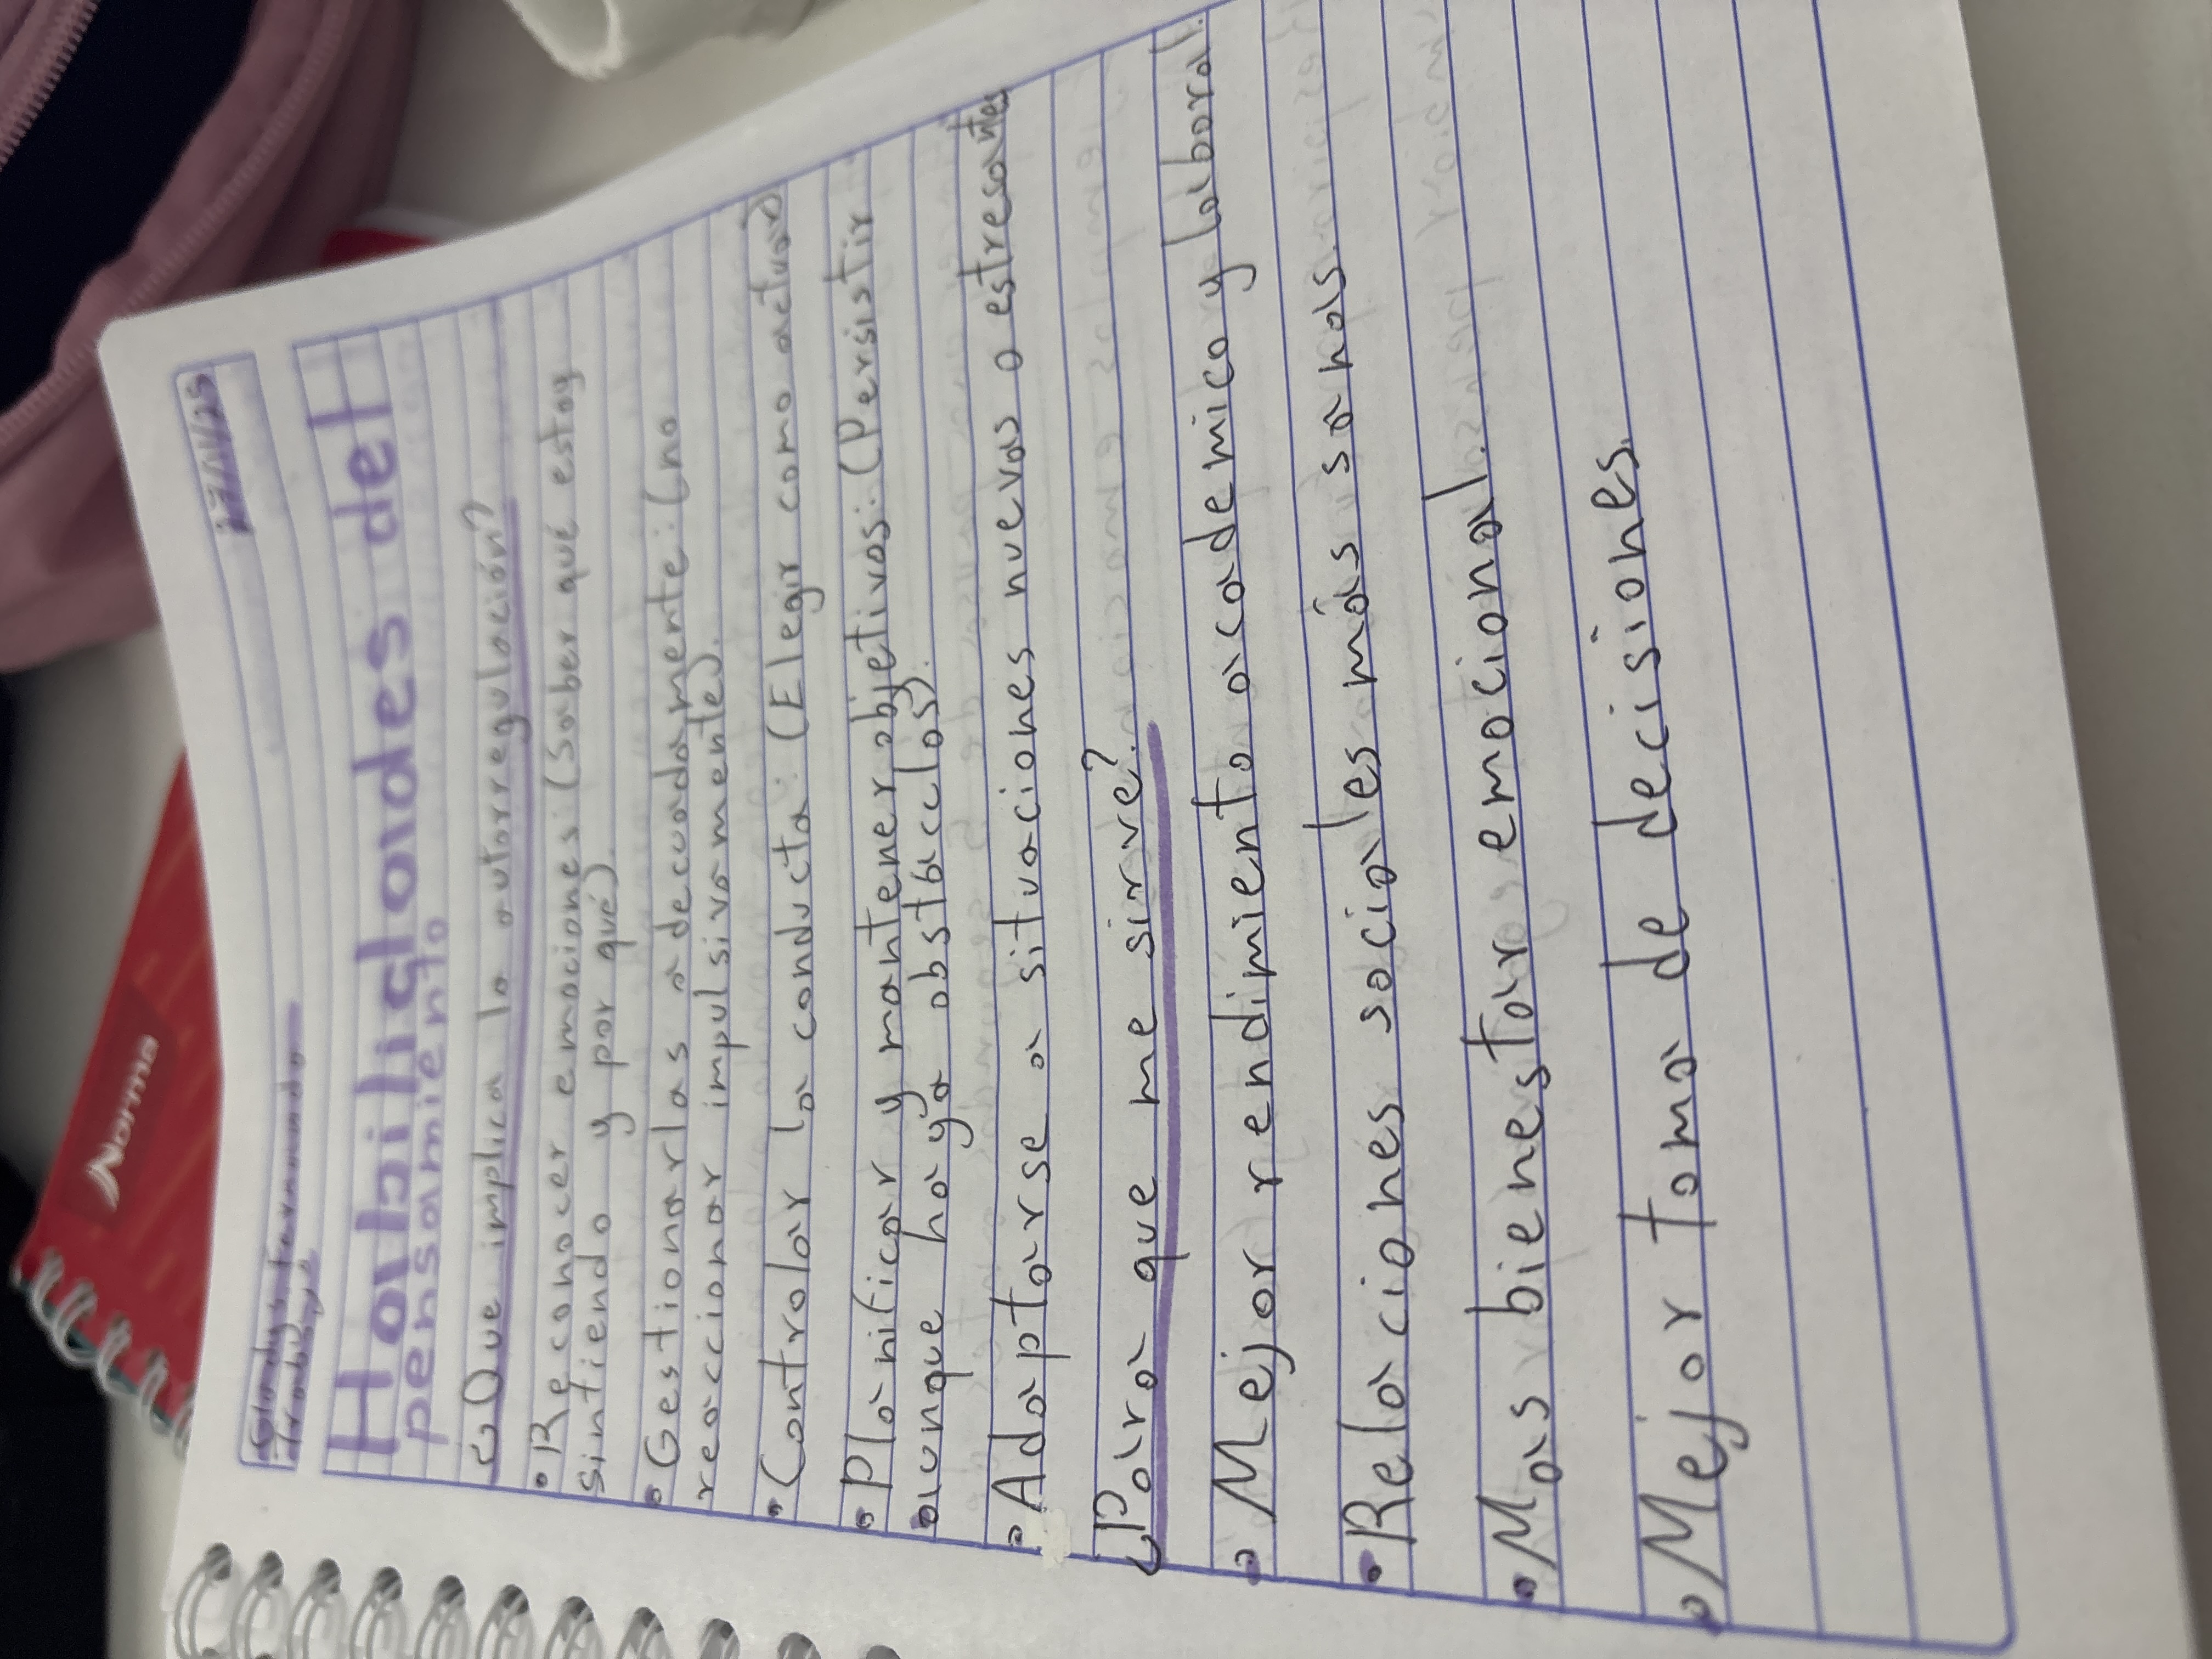 Gladys Fernanda
Habilidades del
pensamiento
¿Que implica la autorregulación?
• Reconocer emociones: (Saber qué estoy
sintiendo y por qué).
• Gestionarlas adecuadamente: (no
reaccionar impulsivamente).
• Controlar la conducta: (Elegir como actuar)
• Planificar y mantener objetivos: (Persistir
aunque haya obstaculos).
• Adaptarse a situaciones nuevas o estresantes
¿Para que me sirve?
• Mejor rendimiento academico y laboral.
• Relaciones sociales más sanas.
• Mas bienestar emocional.
• Mejor toma de decisiones.
Norma